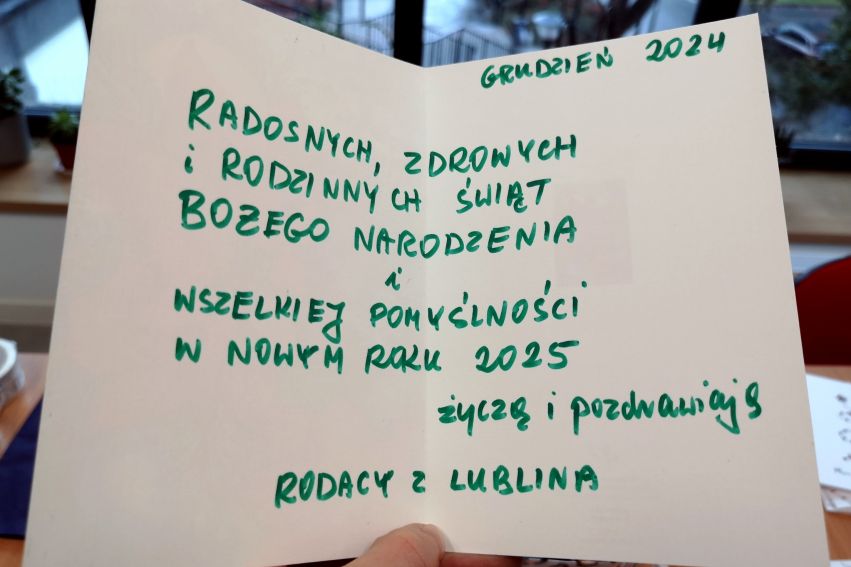 GRUDZIEŃ 2024
RADOSNYCH, ZDROWYCH
i RODZINNYCH ŚWIĄT
BOŻEGO NARODZENIA
i
WSZELKIEJ POMYŚLNOŚCI
W NOWYM ROKU 2025
życzą i pozdrawiają
RODACY Z LUBLINA